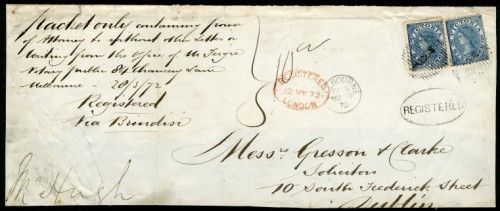 Packet only containing power
of Attorney & without other Letter or
writing from the Office of Mr
Notary public 84 Chancery Lane
Melbourne - 28/3/72
Registered
Via Brindisi
REGISTERED
12 MY 72
LONDON
MELBOURNE
72
VICTORIA
VICTORIA
REGISTERED
Messrs Gresson & Clarke
Solicitors
10 South Frederick Street
Dublin
McHugh